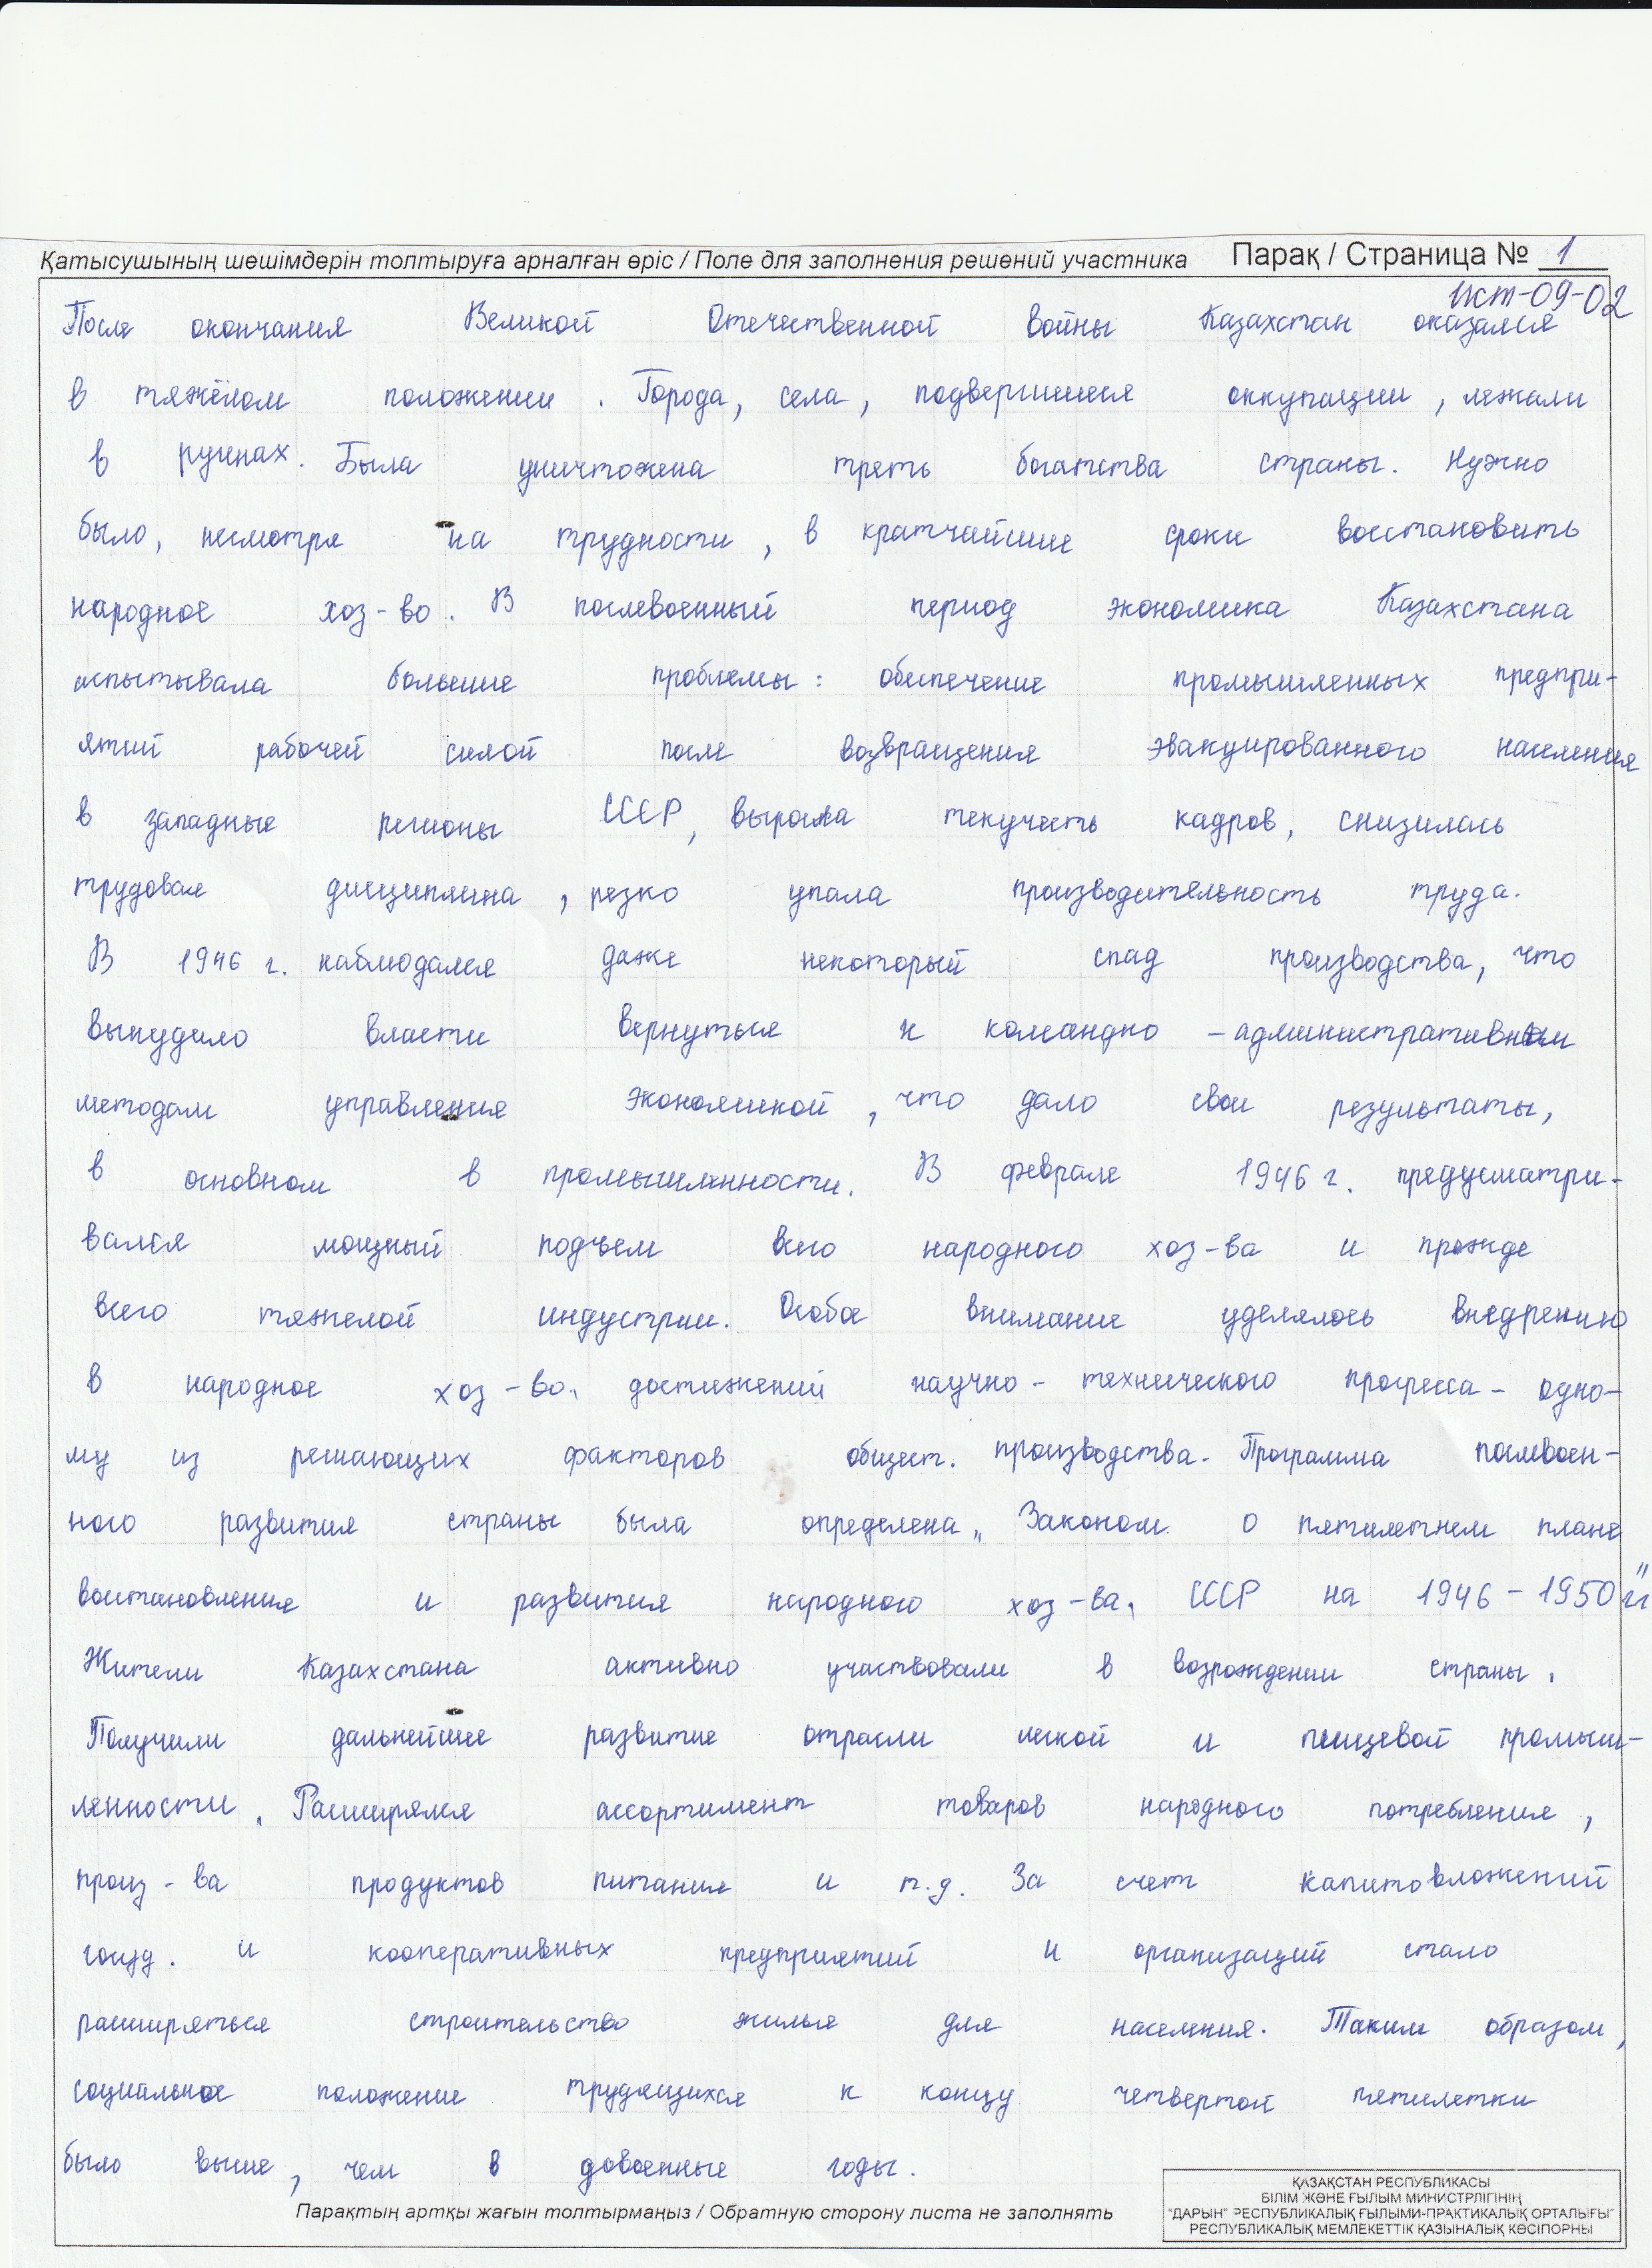 Қатысушының шешімдерін толтыруға арналған өріс / Поле для заполнения решений участника Парақ / Страница № 1
ист-09-02
После окончания Великой Отечественной войны Казахстан оказался
в тяжёлом положении. Города, села, подвергшиеся оккупации, лежали
в руинах. Была уничтожена треть богатства страны. Нужно
было, несмотря на трудности, в кратчайшие сроки восстановить
народное хоз-во. В послевоенный период экономика Казахстана
испытывала большие проблемы: обеспечение промышленных предпри-
ятий рабочей силой после возвращения эвакуированного населения
в западные регионы СССР, выросла текучесть кадров, снизилась
трудовая дисциплина, резко упала производительность труда.
В 1946 г. наблюдался даже некоторый спад производства, что
вынудило власти вернуться к командно-административным
методам управления экономикой, что дало свои результаты,
в основном в промышленности. В феврале 1946 г. предусматри-
вался мощный подъем всего народного хоз-ва и прежде
всего тяжелой индустрии. Особое внимание уделялось внедрению
в народное хоз-во достижений научно-технического прогресса - одно-
му из решающих факторов общест. производства. Программа послевоен-
ного развития страны была определена „Законом о пятилетнем плане
восстановления и развития народного хоз-ва СССР на 1946-1950 гг"
Жители Казахстана активно участвовали в возрождении страны.
Получили дальнейшее развитие отрасли легкой и пищевой промыш-
ленности. Расширялся ассортимент товаров народного потребления,
произ-ва продуктов питания и т.д. За счет капитовложений
госуд. и кооперативных предприятий и организаций стало
расширяться строительство жилья для населения. Таким образом,
социальное положение трудящихся к концу четвертой пятилетки
было выше, чем в довоенные годы.
Парақтың артқы жағын толтырмаңыз / Обратную сторону листа не заполнять
ҚАЗАҚСТАН РЕСПУБЛИКАСЫ
БІЛІМ ЖӘНЕ ҒЫЛЫМ МИНИСТРЛІГІНІҢ
"ДАРЫН" РЕСПУБЛИКАЛЫҚ ҒЫЛЫМИ-ПРАКТИКАЛЫҚ ОРТАЛЫҒЫ"
РЕСПУБЛИКАЛЫҚ МЕМЛЕКЕТТІК ҚАЗЫНАЛЫҚ КӘСІПОРНЫ